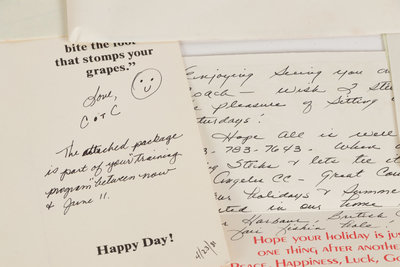 bite the foot
that stomps your
grapes."
Love,
C & C
The attached package
is part of your "training
program" between now
& June 11.
Happy Day!
Enjoying Seeing you
Coach — Wish I
pleasure of Sitting
Saturdays!
Hope All is well
783-7643. When
Stocks & lets tie it
Angeles CC — Great
holidays & Summer
in our home
Harbour, British
Hope your holiday is jus
one thing after anothe
Peace, Happiness, Luck, Go